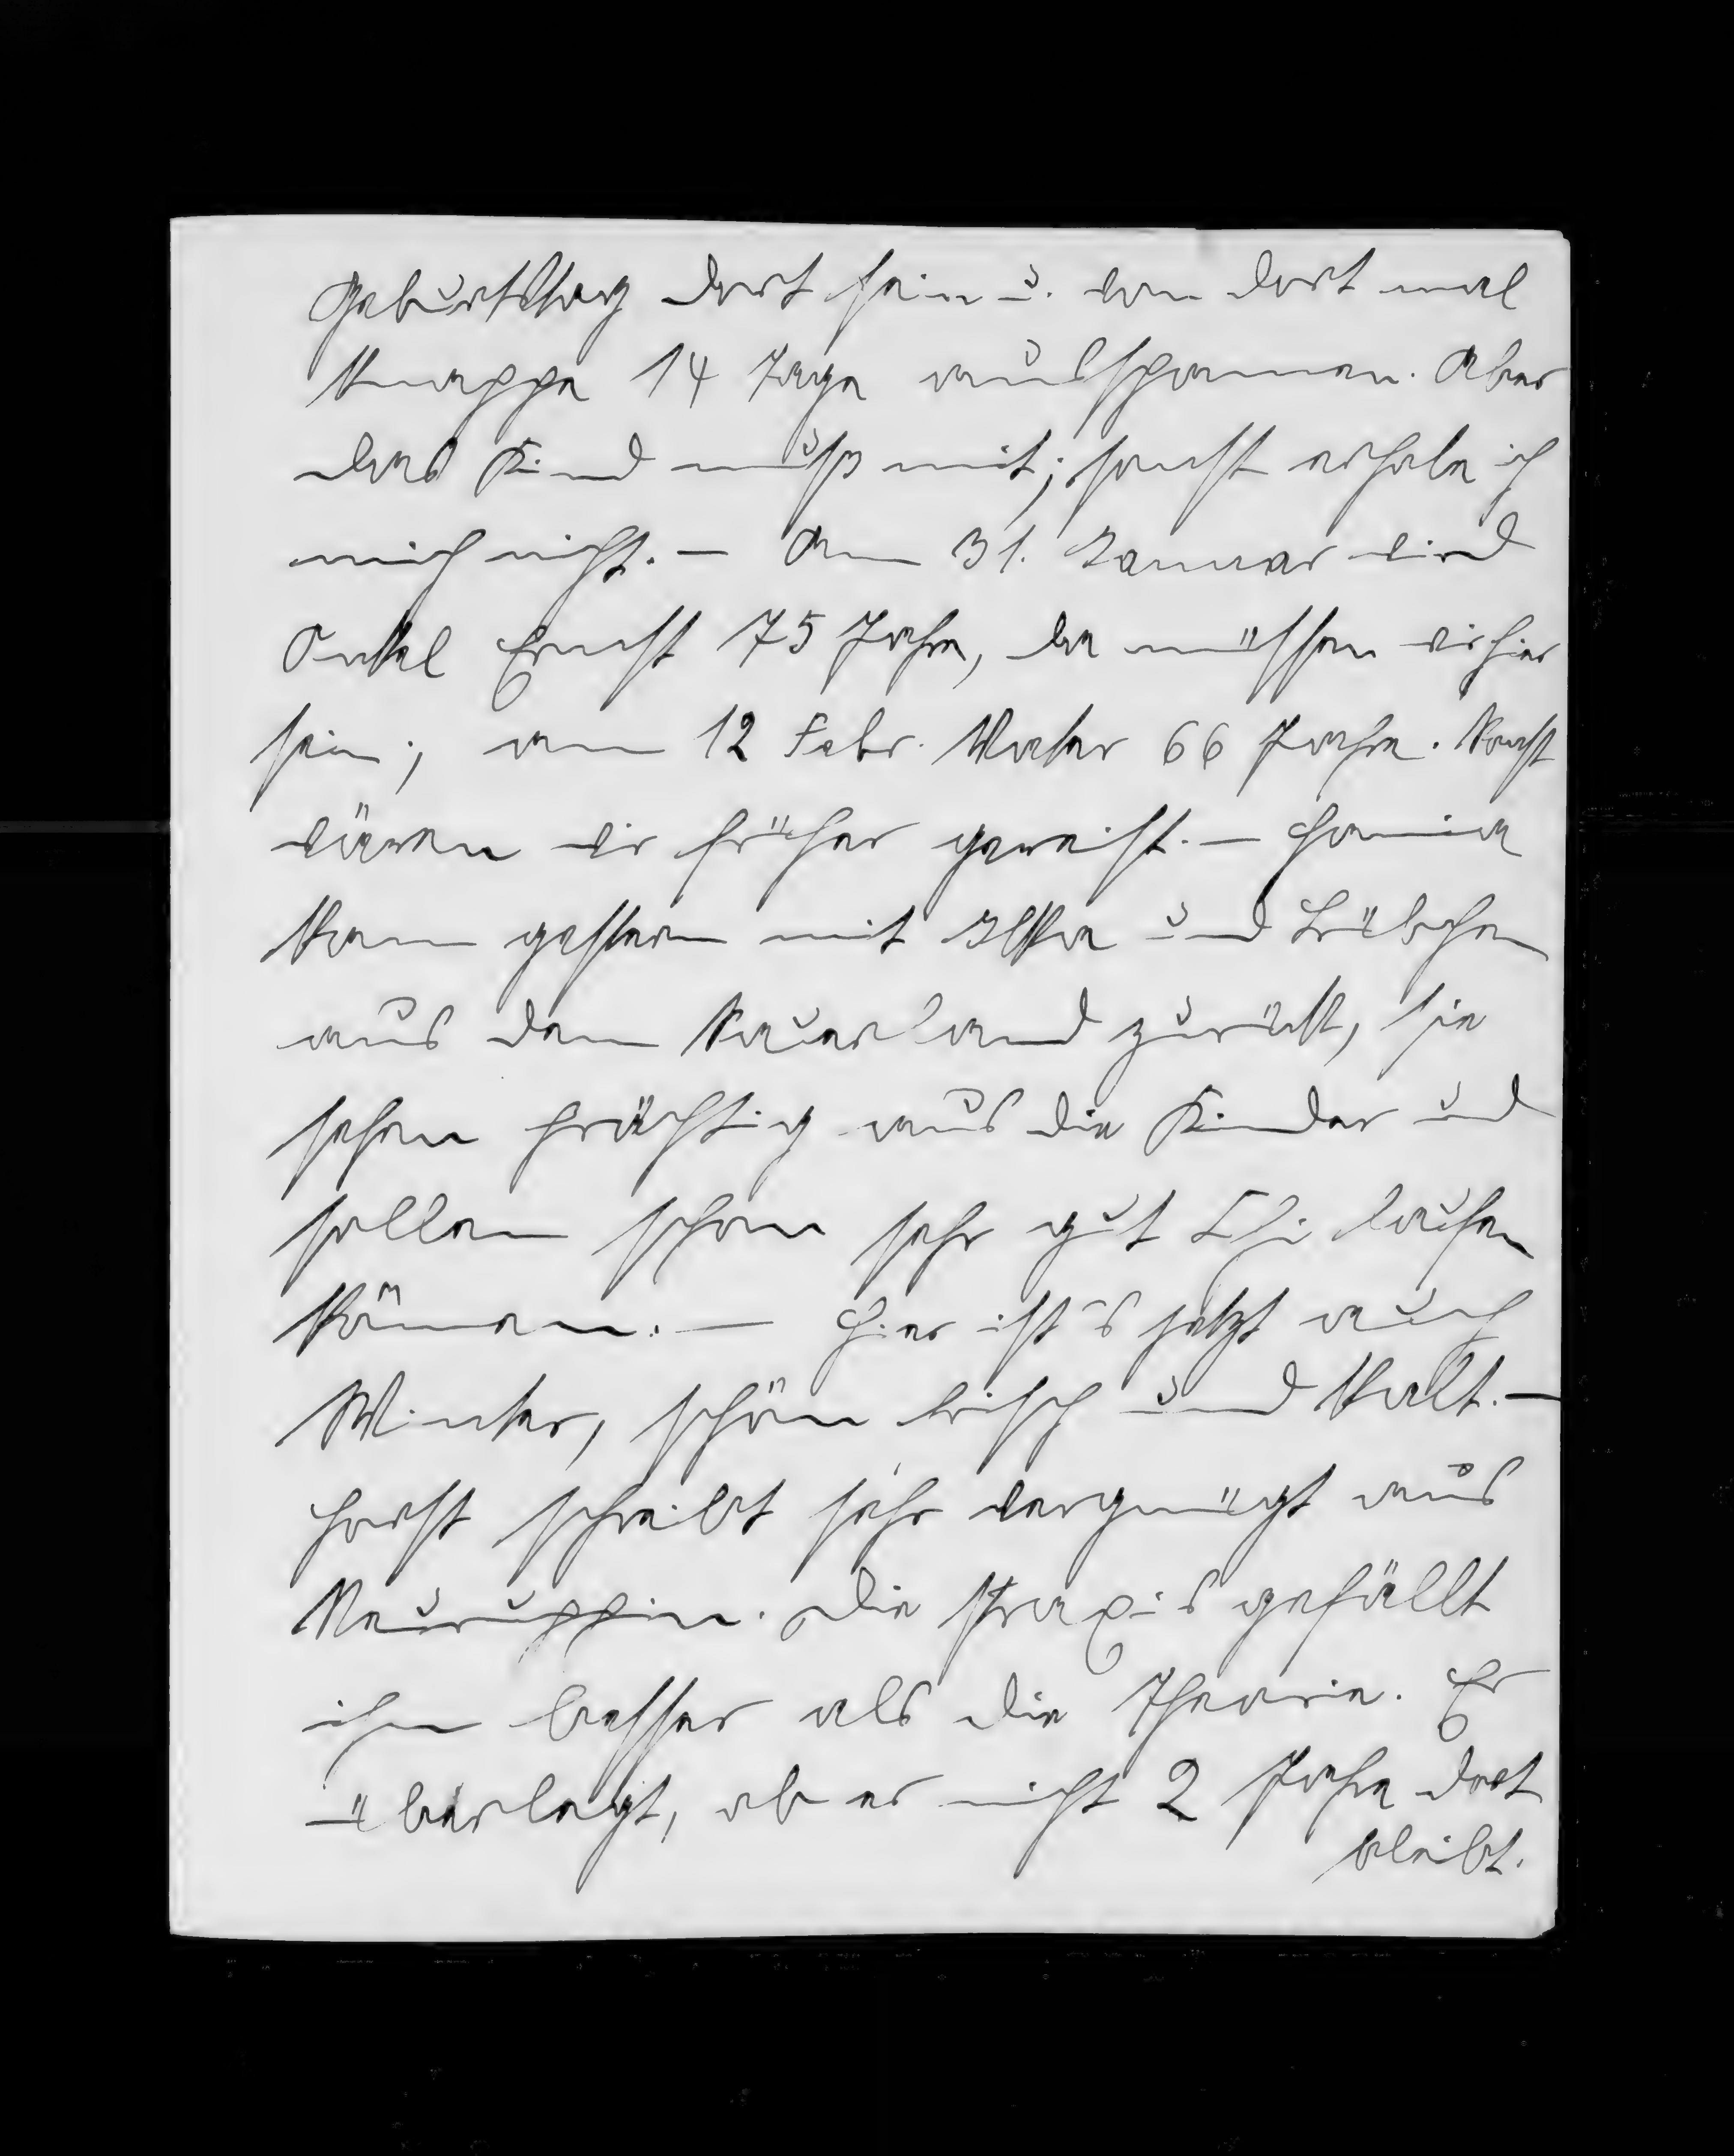 Geburtstag dort sein u. von dort mal
knappe 14 Tage ausspannen. Aber
das Kind muß mit; sonst erhole ich
mich nicht. — Am 31. Januar wird
Onkel Ernst 75 Jahre, da müssen wir hier
sein; am 12 Febr. Vater 66 Jahre. Sonst
wären wir früher gereist. — Hannia
kam gestern mit Ilka und Trübchen
aus dem Sauerland zurück, sie
sehen prächtig aus die Kinder und
sollen schon sehr gut Ski laufen
können. — Hier ist's jetzt auch
Winter, schön frisch und kalt. —
Horst schreibt sehr vergnügt aus
Neuruppin. Die Praxis gefällt
ihm besser als die Theorie. Er
überlegt, ob er nicht 2 Jahre dort
bleibt.